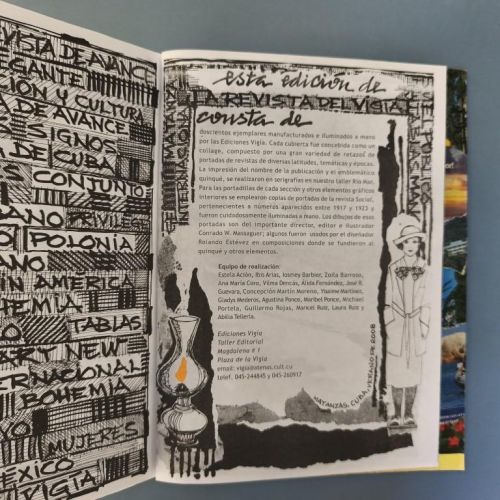 REVISTA DE AVANCE
ELEGANTE
CIÓN Y CULTURA
DE AVANCE
SIGNOS
DE CUBA
CONJUNTO
ANO PRIVILEG
O POLONIA
ANO
AN AMÉRICA
HEMIA
TABLAS
ARY NEW
TERNACIONAL
BOHEMIA
MUJERES
MÉXICO
VIGÍA
esta edición de
LA REVISTA DEL VIGÍA
consta de
doscientos ejemplares manufacturados e iluminados a mano
por las Ediciones Vigía. Cada cubierta fue concebida como un
collage, compuesto por una gran variedad de retazos de
portadas de revistas de diversas latitudes, temáticas y épocas.
La impresión del nombre de la publicación y el emblemático
quinqué, se realizaron en serigrafías en nuestro taller Río Mar.
Para las portadillas de cada sección y otros elementos gráficos
interiores se emplearon copias de portadas de la revista Social,
pertenecientes a números aparecidos entre 1917 y 1923 y
fueron cuidadosamente iluminadas a mano. Los dibujos de esas
portadas son del importante director, editor e ilustrador
Conrado W. Massaguer; algunos fueron usados por el diseñador
Rolando Estévez en composiciones donde se fundieron al
quinqué y otros elementos.
Equipo de realización:
Estela Ación, Ibis Arias, Iosney Barbier, Zoila Barroso,
Ana María Cairo, Vilma Dencás, Alida Fernández, José R.
Guevara, Concepción Martín Moreno, Yissine Martínez,
Gladys Mederos, Agustina Ponce, Maribel Ponce, Michael
Portela, Guillermo Rojas, Maricel Ruiz, Laura Ruiz y
Abilia Tellería.
Ediciones Vigía
Taller Editorial
Magdalena # 1
Plaza de la Vigía
email: vigia@atenas.cult.cu
telef. 045-244845 y 045-260917
MATANZAS, CUBA, VERANO DE 2008